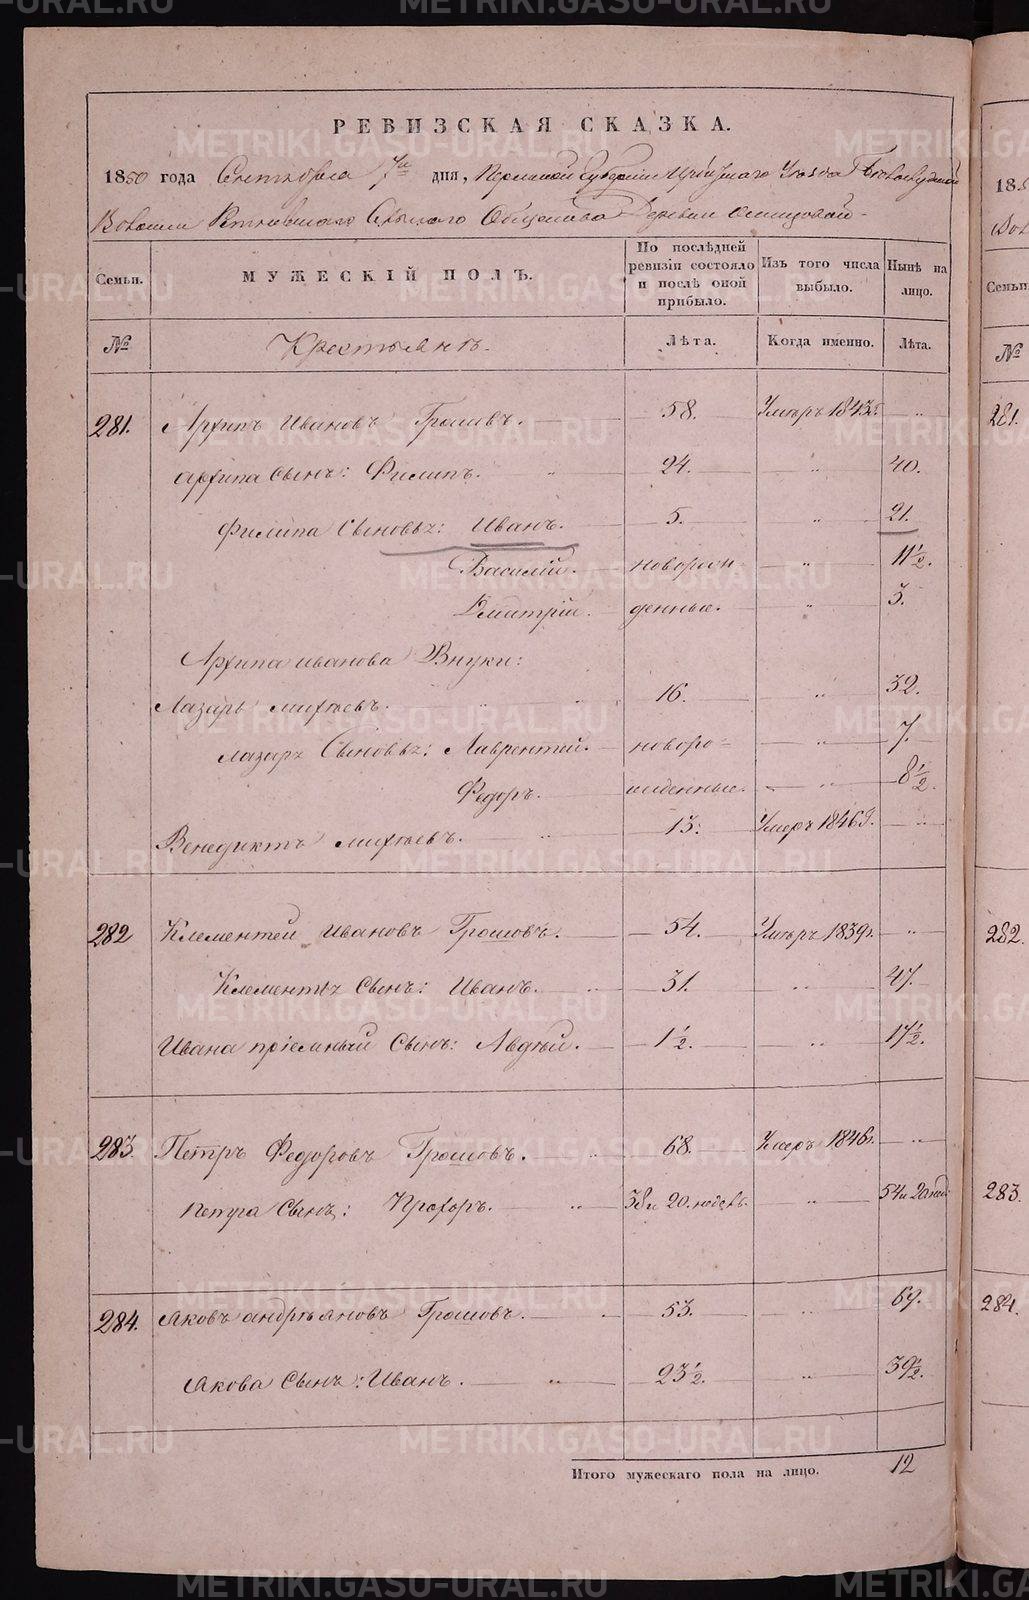 METRIKI.GASO-URAL.RU
РЕВИЗСКАЯ СКАЗКА.
1850 года Сентября 7го дня, Пермской Губернии Ирбитскаго Уезда
Волости Сельскаго Общества Деревни
Семьи. МУЖЕСКІЙ ПОЛЪ. По послѣдней ревизіи состояло и послѣ оной прибыло. Изъ того числа выбыло. Нынѣ на лицо.
№ Крестьянъ. Лѣта. Когда именно. Лѣта.
281. Архипъ Ивановъ Грошовъ. 58. Умеръ 1843г „
Архипа сынъ: Филипъ. „ 24. „ 40.
Филипа Сыновья: Иванъ. 5. „ 21.
Василій. новорож „ 11 1/2.
Дмитрій. денные. „ 3.
Архипа иванова Внуки:
Лазарь михѣевъ. „ „ 16. „ 32.
Лазаря Сыновья: Лаврентей. новоро= „ 7.
Федоръ. жденные. „ 8 1/2.
Венедиктъ михѣевъ. „ 13. Умеръ 1846г. „
282 Клементей Ивановъ Грошовъ. 54. Умеръ 1839г. „
Клементья Сынъ: Иванъ. „ 31. „ 47.
Ивана пріемный Сынъ: Авдѣй. 1 1/2. „ 17 1/2.
283. Петръ Федоровъ Грошовъ. „ 68. Умеръ 1846г. „
Петра Сынъ: Прохоръ. „ 38 и 20. недель. „ 54 и 20 нед.
284. Яковъ андрѣяновъ Грошовъ. 53. „ 69.
Якова Сынъ: Иванъ. „ 23 1/2. „ 39 1/2.
Итого мужескаго пола на лицо. 12
281.
282.
283.
284.